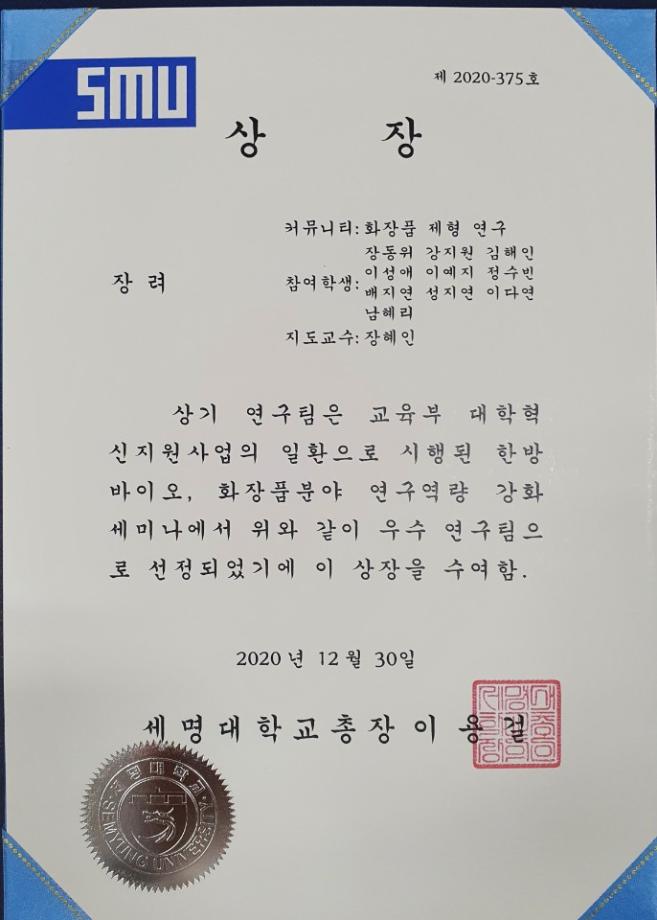 SMU
제 2020-375호
상 장
커뮤니티: 화장품 제형 연구
장려
참여학생: 장동위 강지원 김해인
이성애 이예지 정수빈
배지연 성지연 이다연
남혜리
지도교수: 장혜인
상기 연구팀은 교육부 대학혁
신지원사업의 일환으로 시행된 한방
바이오, 화장품분야 연구역량 강화
세미나에서 위와 같이 우수 연구팀으
로 선정되었기에 이 상장을 수여함.
2020년 12월 30일
세명대학교총장 이용걸
세명대학교
SEMYUNG UNIVERSITY